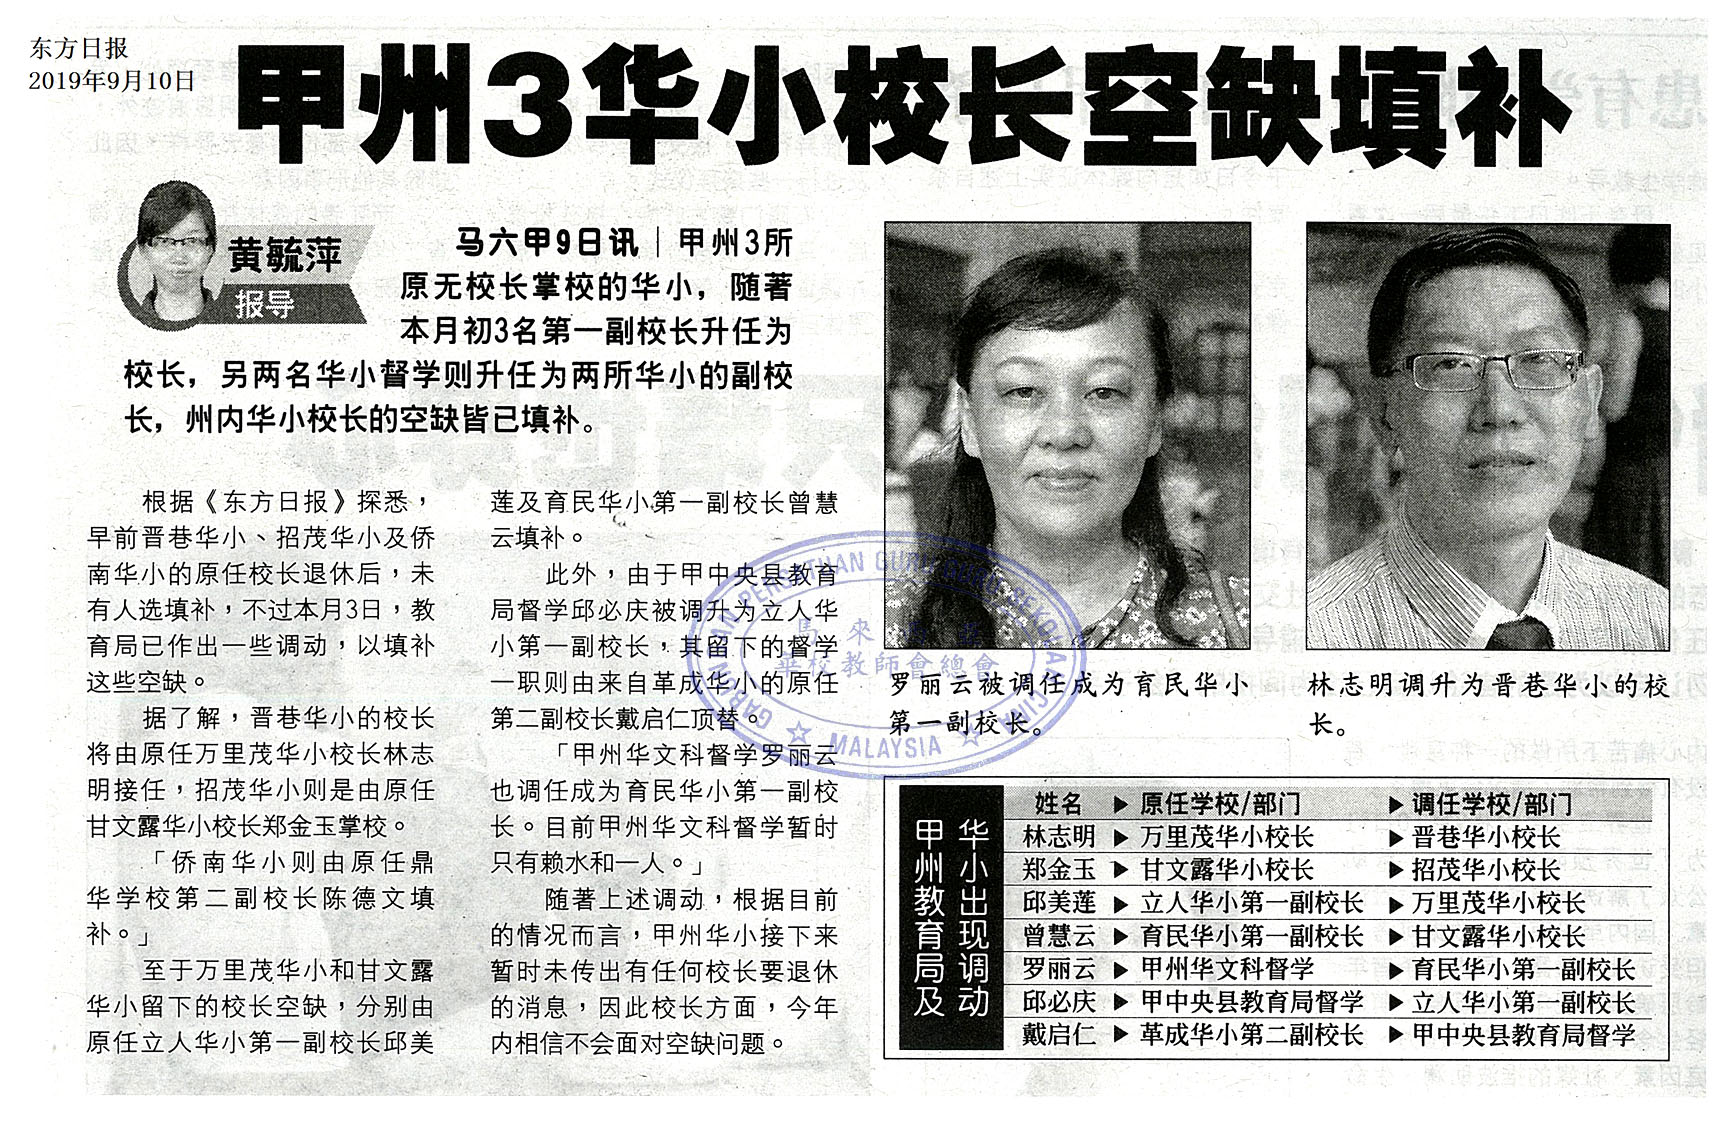 东方日报
2019年9月10日
甲州3华小校长空缺填补
黄毓萍
报导
马六甲9日讯｜甲州3所
原无校长掌校的华小，随著
本月初3名第一副校长升任为
校长，另两名华小督学则升任为两所华小的副校
长，州内华小校长的空缺皆已填补。
根据《东方日报》探悉，
早前晋巷华小、招茂华小及侨
南华小的原任校长退休后，未
有人选填补，不过本月3日，教
育局已作出一些调动，以填补
这些空缺。
据了解，晋巷华小的校长
将由原任万里茂华小校长林志
明接任，招茂华小则是由原任
甘文露华小校长郑金玉掌校。
「侨南华小则由原任鼎
华学校第二副校长陈德文填
补。」
至于万里茂华小和甘文露
华小留下的校长空缺，分别由
原任立人华小第一副校长邱美
莲及育民华小第一副校长曾慧
云填补。
此外，由于甲中央县教育
局督学邱必庆被调升为立人华
小第一副校长，其留下的督学
一职则由来自革成华小的原任
第二副校长戴启仁顶替。
「甲州华文科督学罗丽云
也调任成为育民华小第一副校
长。目前甲州华文科督学暂时
只有赖水和一人。」
随著上述调动，根据目前
的情况而言，甲州华小接下来
暂时未传出有任何校长要退休
的消息，因此校长方面，今年
内相信不会面对空缺问题。
GABUNGAN PERSATUAN GURU GURU SEKOLAH CINA
馬來西亞
華校教師會總會
MALAYSIA
罗丽云被调任成为育民华小
第一副校长。
林志明调升为晋巷华小的校
长。
甲州教育局及
华小出现调动
姓名 ▶ 原任学校/部门 ▶ 调任学校/部门
林志明 ▶ 万里茂华小校长 ▶ 晋巷华小校长
郑金玉 ▶ 甘文露华小校长 ▶ 招茂华小校长
邱美莲 ▶ 立人华小第一副校长 ▶ 万里茂华小校长
曾慧云 ▶ 育民华小第一副校长 ▶ 甘文露华小校长
罗丽云 ▶ 甲州华文科督学 ▶ 育民华小第一副校长
邱必庆 ▶ 甲中央县教育局督学 ▶ 立人华小第一副校长
戴启仁 ▶ 革成华小第二副校长 ▶ 甲中央县教育局督学